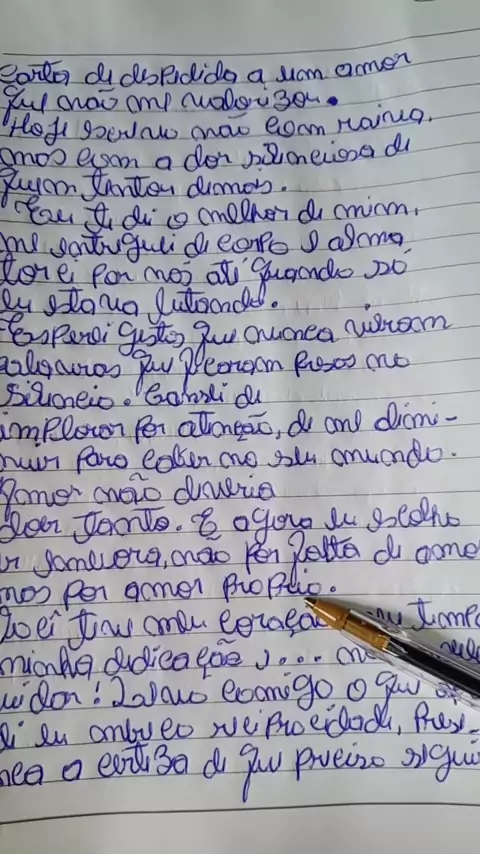 Carta de despedida a um amor
que não me valorizou.
Hoje escrevo não com raiva,
mas com a dor silenciosa de
quem tentou demais.
Eu te dei o melhor de mim,
me entreguei de corpo e alma
por nós até quando só
eu estava lutando.
Esperei gestos que nunca vieram
palavras que ficaram presas no
silêncio. Cansei de
implorar por atenção, de me dimi-
nuir para caber no seu mundo.
Amor não deveria
doer tanto. E agora eu escolho
ir embora, não por falta de amo
mas por amor próprio.
Você teve meu coração meu tempo
minha dedicação, ...
cuidar! Levo comigo o que
eu reciprocidade, pres-
a certeza de que preciso segui